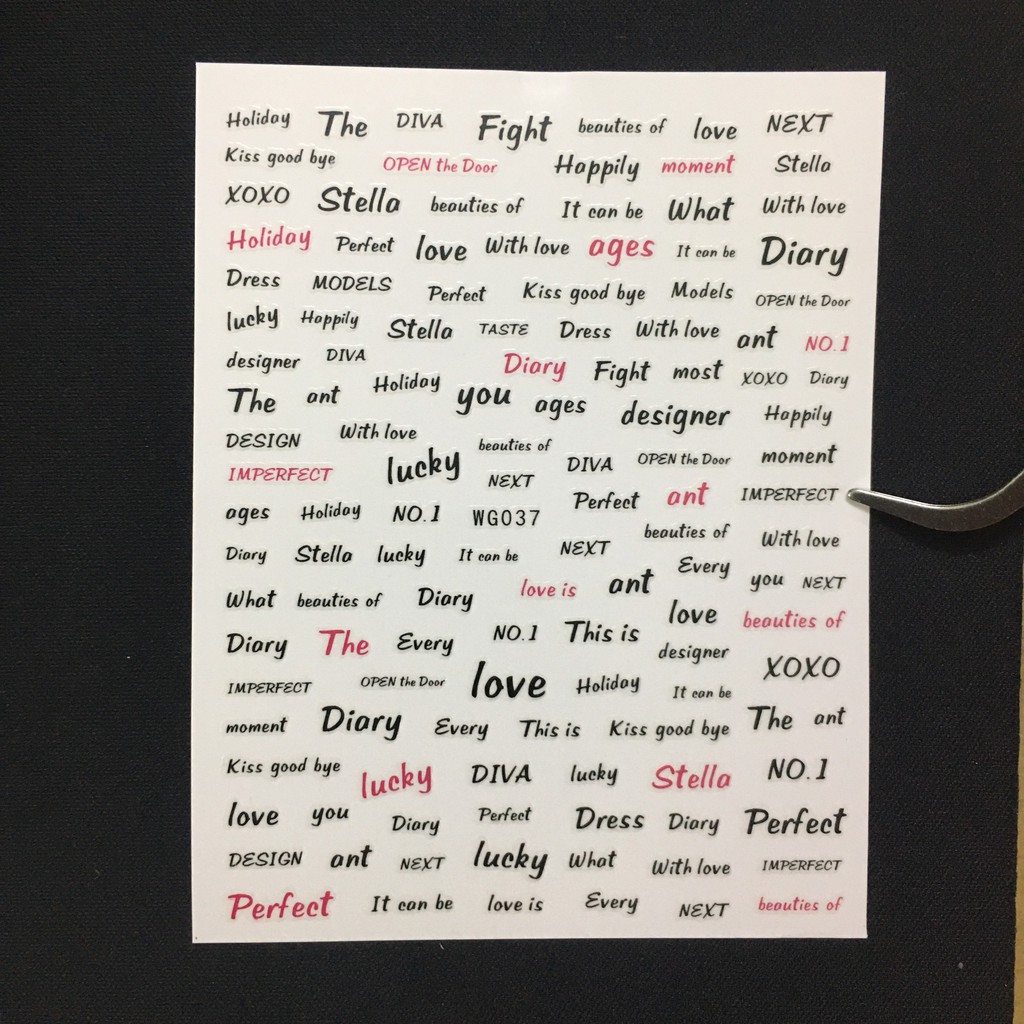 Holiday The DIVA Fight beauties of love NEXT
Kiss good bye OPEN the Door Happily moment Stella
XOXO Stella beauties of It can be What With love
Holiday Perfect love With love ages It can be Diary
Dress MODELS Perfect Kiss good bye Models OPEN the Door
lucky Happily Stella TASTE Dress With love ant NO.1
designer DIVA Diary Fight most XOXO Diary
The ant Holiday you ages designer Happily
DESIGN With love beauties of DIVA OPEN the Door moment
IMPERFECT lucky NEXT Perfect ant IMPERFECT
ages Holiday NO.1 WG037 beauties of With love
Diary Stella lucky It can be NEXT Every you NEXT
What beauties of Diary love is ant love beauties of
Diary The Every NO.1 This is designer XOXO
IMPERFECT OPEN the Door love Holiday It can be
moment Diary Every This is Kiss good bye The ant
Kiss good bye lucky DIVA lucky Stella NO.1
love you Diary Perfect Dress Diary Perfect
DESIGN ant NEXT lucky What With love IMPERFECT
Perfect It can be love is Every NEXT beauties of